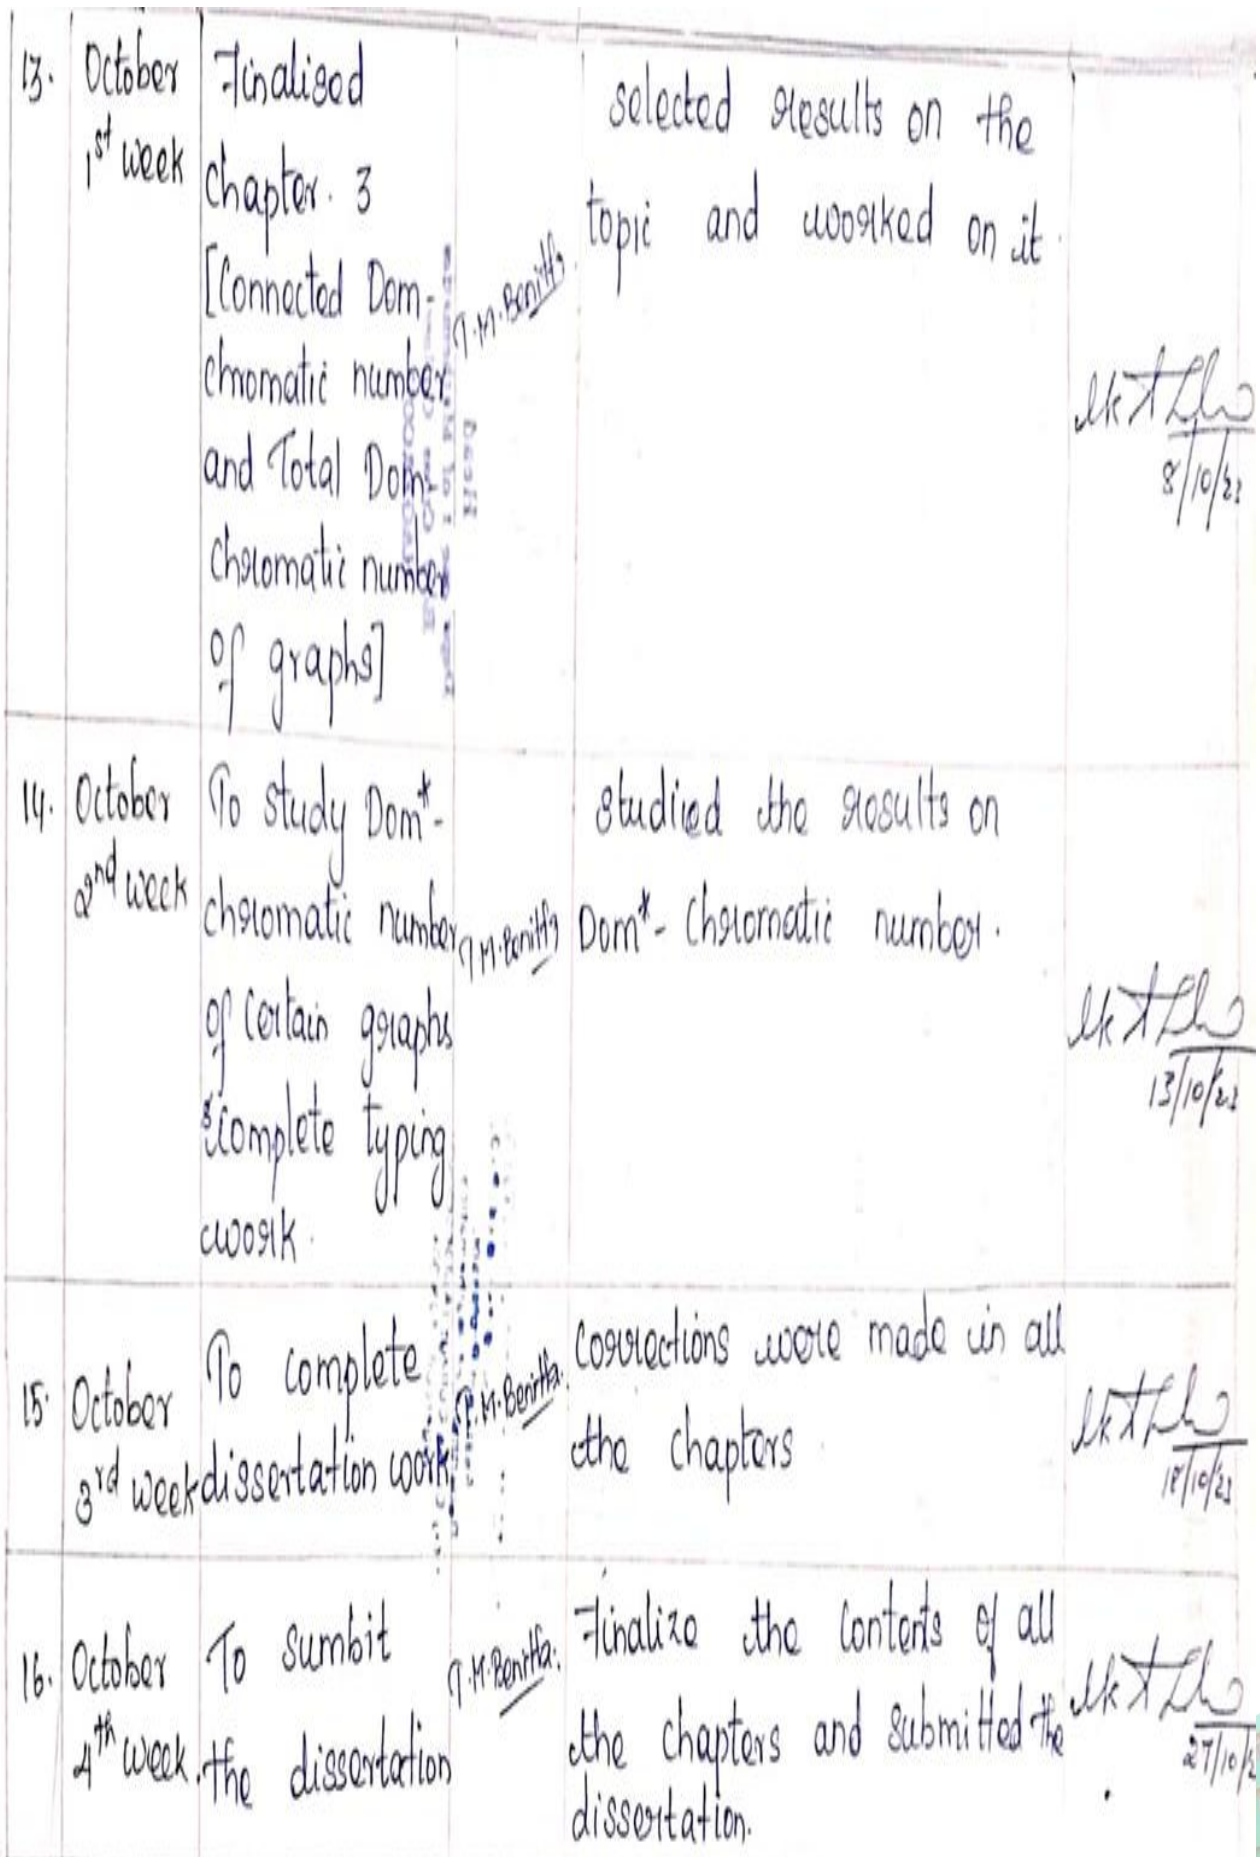 13.
October
1st week
Finalised
Chapter. 3
[Connected Dom-
chromatic number
and Total Dom
chromatic number
of graphs]
T.M.Benitta
selected results on the
topic and worked on it.
8/10/
14.
October
2nd week
To study Dom*-
chromatic number
of Certain graphs
& complete typing
work.
T.M.Benitta
studied the results on
Dom* - Chromatic number.
13/10/
15.
October
3rd week
To complete
dissertation work
T.M.Benitta.
Corrections were made in all
the chapters
/10/
16.
October
4th week.
To sumbit
the dissertation
T.M.Benitta.
Finalize the contents of all
the chapters and submitted the
dissertation.
27/10/